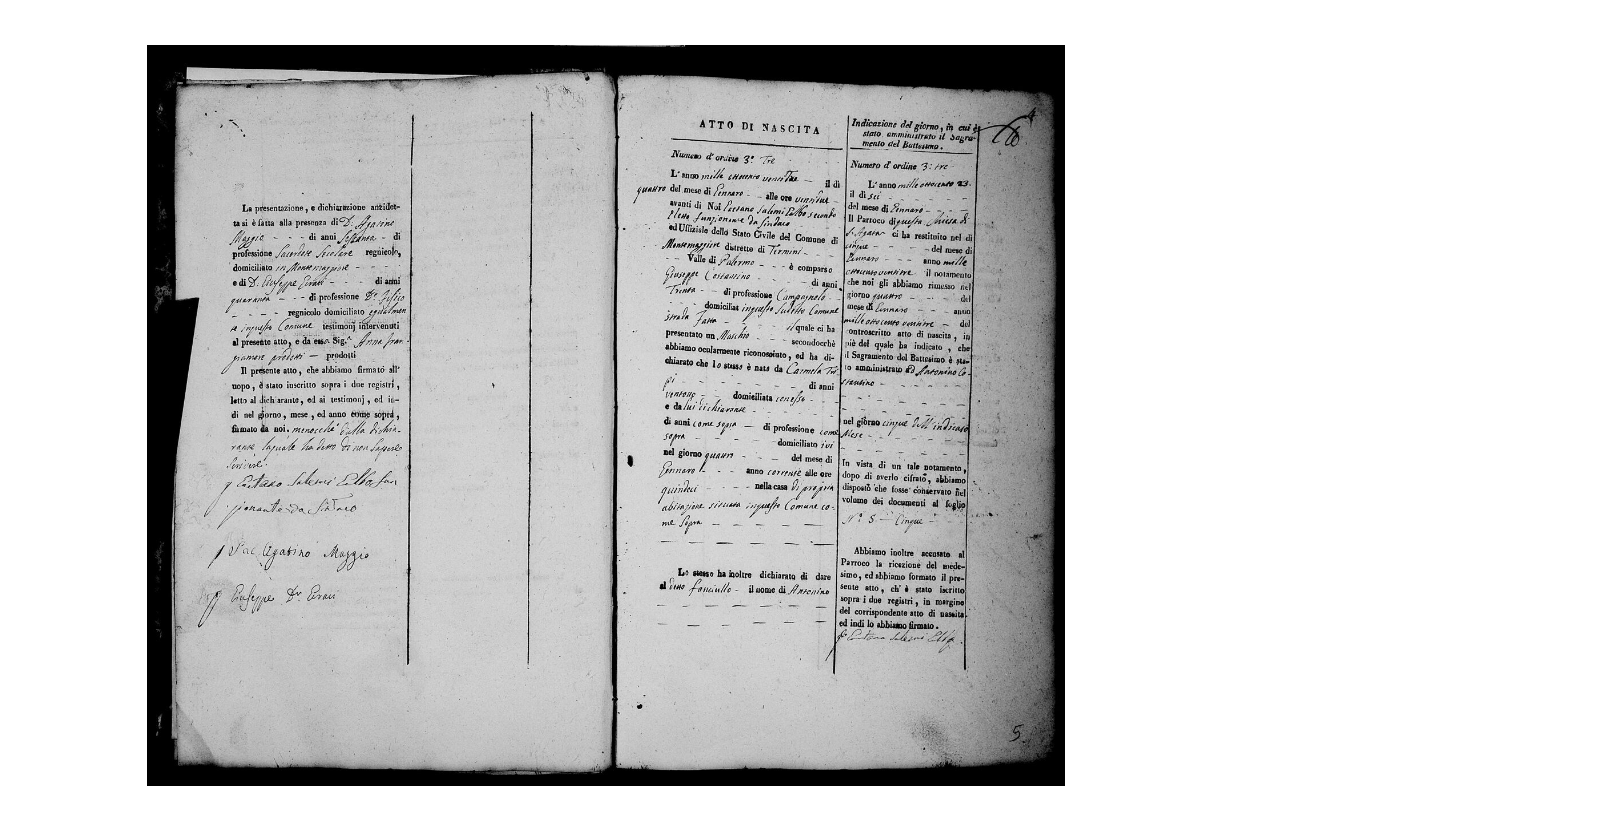 La presentazione, e dichiarazione anzidet-
ta si è fatta alla presenza di D. Agatino
Maggio - - - di anni settanta - di
professione Sacerdote Secolare regnicolo,
domiciliato in Montemaggiore - - - -
e di D. Giuseppe - - - di anni
quaranta - - - di professione Dr. Fisico
- - - - regnicolo domiciliato
in questo Comune testimonj intervenuti
al presente atto, e da essa Sig.a Anna
prodotti — prodotti
Il presente atto, che abbiamo firmato all'
uopo, è stato inscritto sopra i due registri,
letto al dichiarante, ed ai testimonj, ed in-
di nel giorno, mese, ed anno come sopra,
firmato da noi. menocchè dalla dichia-
rante laquale ha detto di non sapere
scrivere.
Gaetano Salemi Elba fun
zionante da Sindaco
Sac. Agatino Maggio
Giuseppe Dr.
ATTO DI NASCITA
Numero d' ordine 3° Tre
L' anno mille ottocento venti Tre — il dì
quattro del mese di Gennaro - - alle ore
avanti di Noi Gaetano Salemi Elba secondo
Eletto funzionante da Sindaco
ed Uffiziale dello Stato Civile del Comune di
Montemaggiore distretto di Termini - -
Valle di Palermo - - - è comparso
Giuseppe Cossentino - - - di anni
Trenta - - di professione Campagnolo
- - - domiciliat in questo sudetto Comune
strada - - - il quale ci ha
presentato un Maschio - - - secondochè
abbiamo ocularmente riconosciuto, ed ha di-
chiarato che lo stesso è nato da Carmela
- - - - di anni
domiciliata
e da lui dichiarante - - -
di anni come sopra — di professione come
sopra - - - - domiciliato ivi
nel giorno quattro - - - del mese di
Gennaro - - - anno corrente alle ore
quindici - - - nella casa di propria
abitazione situata in questo Comune co-
me sopra - - - -
Lo stesso ha inoltre dichiarato di dare
al detto fanciullo - il nome di Antonino
Indicazione del giorno, in cui è
stato amministrato il Sagra-
mento del Battesimo.
Numero d' ordine 3: tre
L' anno mille ottocento 23.
il dì sei - - - -
del mese di Gennaro - - -
Il Parroco di questa Chiesa di
S. Agata ci ha restituito nel dì
cinque - - - - del mese di
Gennaro - - - anno mille
ottocento ventitre il notamento
che noi gli abbiamo rimesso nel
giorno quattro - - - del
mese di Gennaro - - anno
mille ottocento ventitre — del
controscritto atto di nascita, in
piè del quale ha indicato, che
il Sagramento del Battesimo è sta-
to amministrato ad Antonino
nel giorno cinque dell'indicato
Mese - -
In vista di un tale notamento,
dopo di averlo cifrato, abbiamo
disposto che fosse conservato nel
volume dei documenti al foglio
N° 5 — Cinque -
Abbiamo inoltre accusato al
Parroco la ricezione del mede-
simo, ed abbiamo formato il pre-
sente atto, ch' è stato iscritto
sopra i due registri, in margine
del corrispondente atto di nascita
ed indi lo abbiamo firmato.
Gaetano Salemi Elba
5